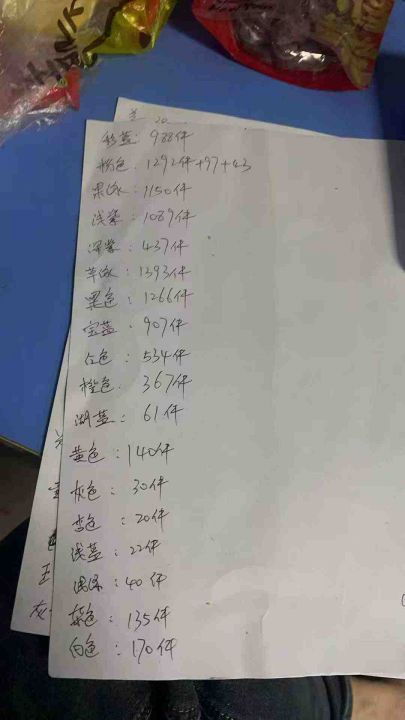 彩蓝: 988件
粉色: 1292件+97+43
果绿: 1150件
浅紫: 1089件
深紫: 437件
草绿: 1393件
黑色: 1266件
宝蓝: 907件
红色: 534件
橙色: 367件
湖蓝: 61件
黄色: 140件
灰色: 30件
杏色: 20件
浅蓝: 22件
: 40件
棕色: 135件
白色: 170件